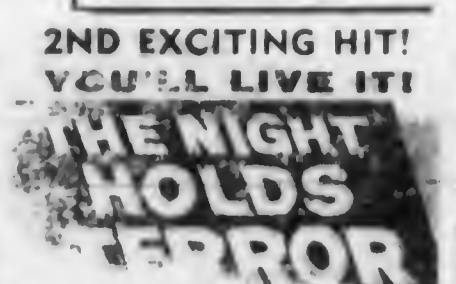 2ND EXCITING HIT!
YOU'LL LIVE IT!
THE NIGHT
HOLDS
TERROR